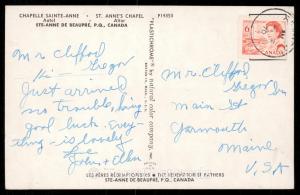 CHAPELLE SAINTE-ANNE • ST. ANNE'S CHAPEL
Autel Altar
STE-ANNE DE BEAUPRÉ, P.Q., CANADA
P19353
"PLASTICHROME" by
CANADA
6
Mr. Clifford
Gregor
Hi
Just arrived
no trouble, bring
good luck. Every-
thing is lovely
Love
John & Ellen
Mr. Clifford
Gregor
Main St
Yarmouth
Maine
U.S.A
LES PÈRES RÉDEMPTORISTES • THE REDEMPTORIST FATHERS
STE-ANNE DE BEAUPRÉ, P.Q., CANADA